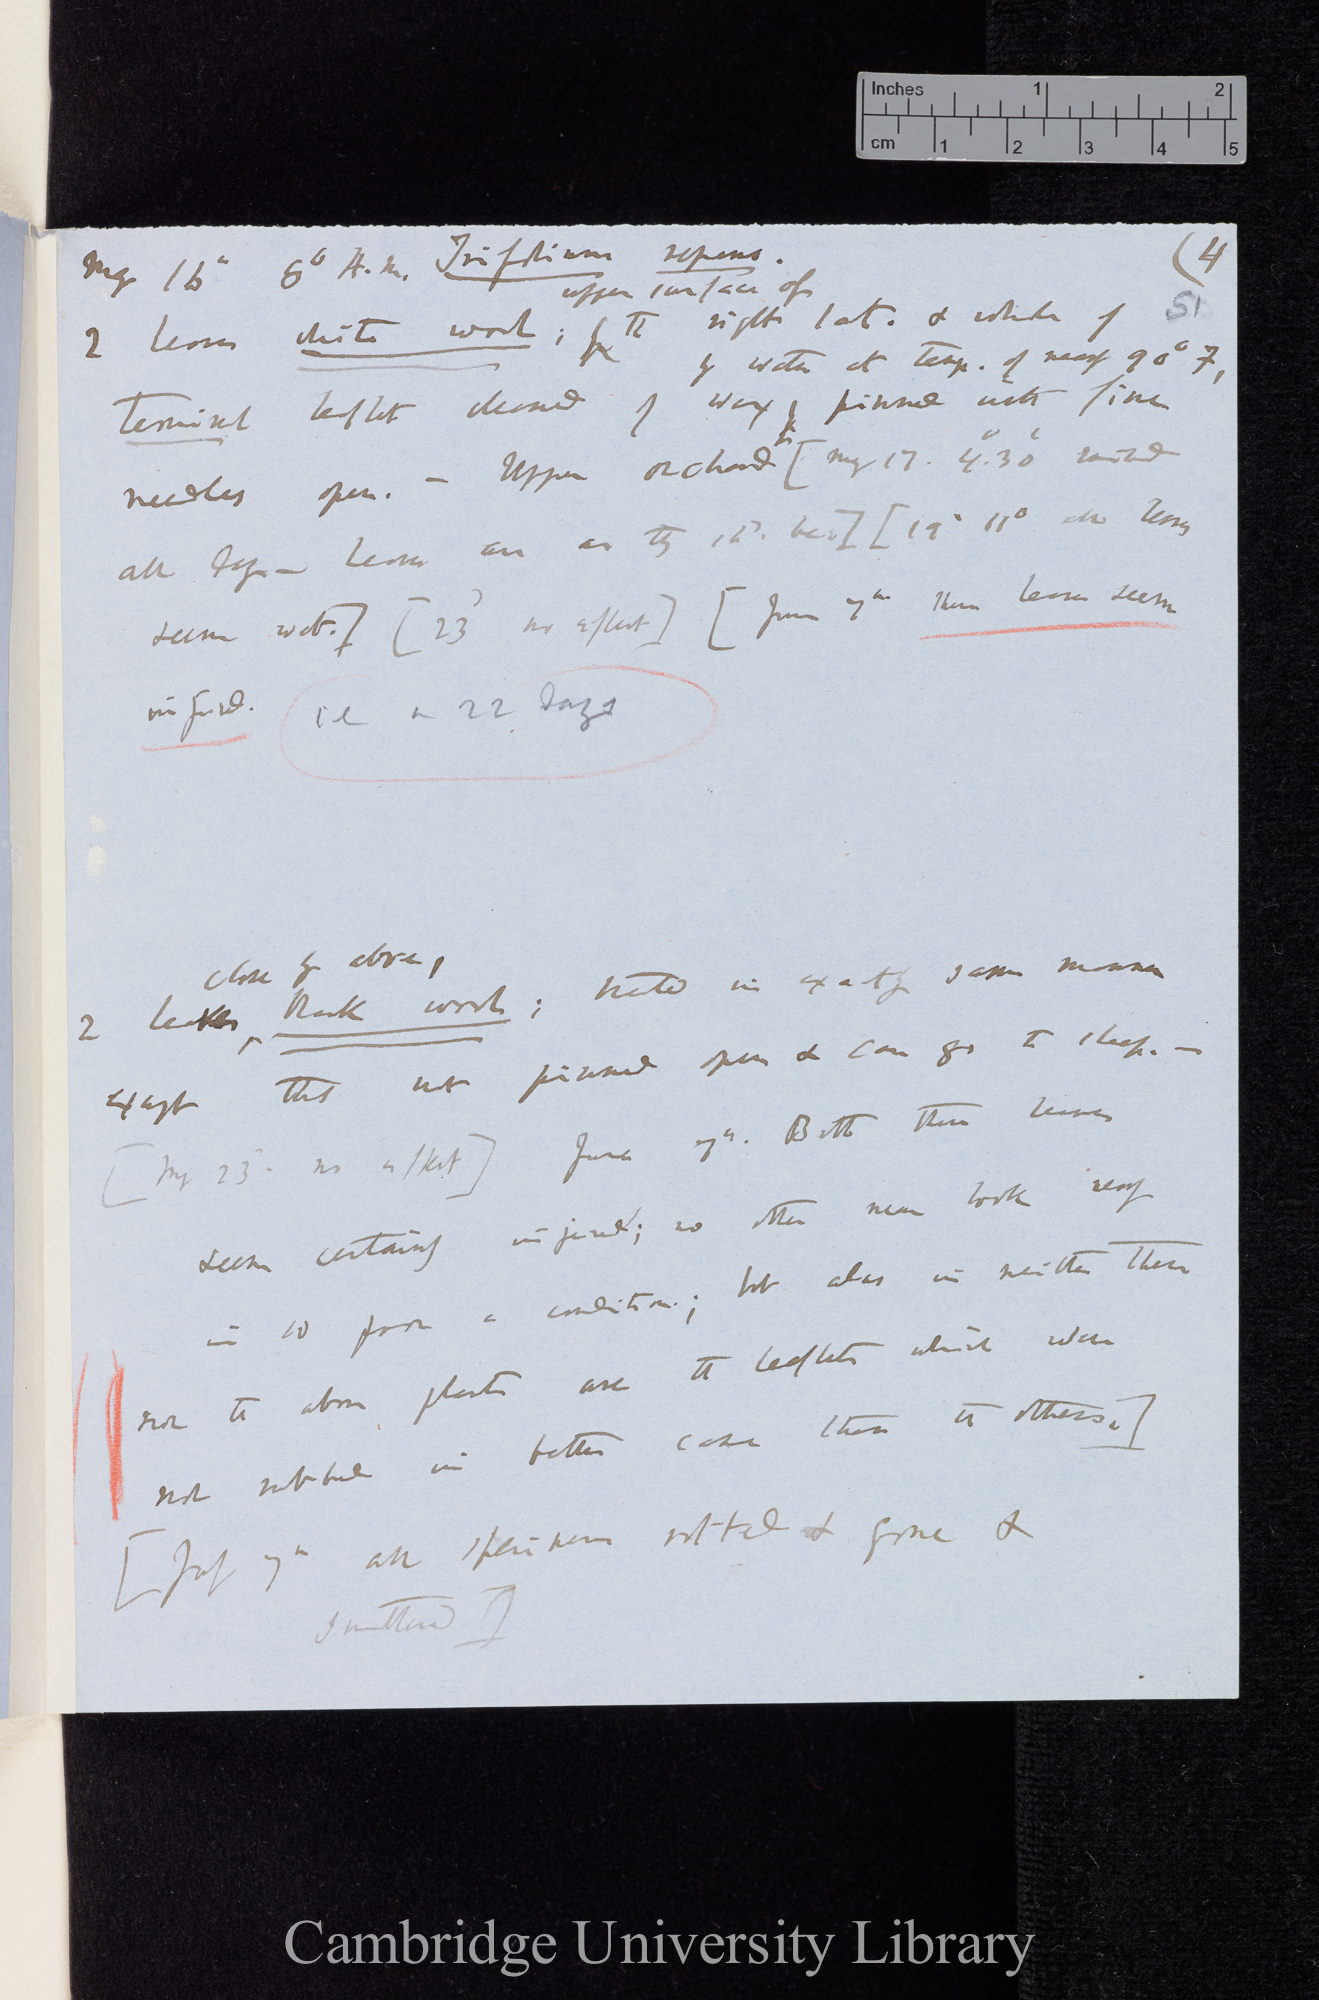 Inches 1 2
cm 1 2 3 4 5
(4
51
May 16th 8° A.m. Trifolium repens.
upper surface of
2 leaves white wool; the right lat. & whole of
by water at temp. of nearly 90° F,
terminal leaflet cleaned of wax & pinned with fine
needles open. — Upper orchard [May 17. 4°.30' rained
all day — leaves are as they [19th 11° the leaves
seem wet.] [23d no effect] [June 7th these leaves seem
injured. i.e. in 22 days
close by above,
2 leaves, Black wool; treated in exactly same manner
except that not pinned open & can go to sleep. —
[May 23d no effect] June 7th. Both these leaves
seem certainly injured; no other near look nearly
in so poor a condition; but alas in neither these
nor the above plants are the leaflets which were
not rubbed in better case than the others.]
[July 7th all specimens rotted & gone &